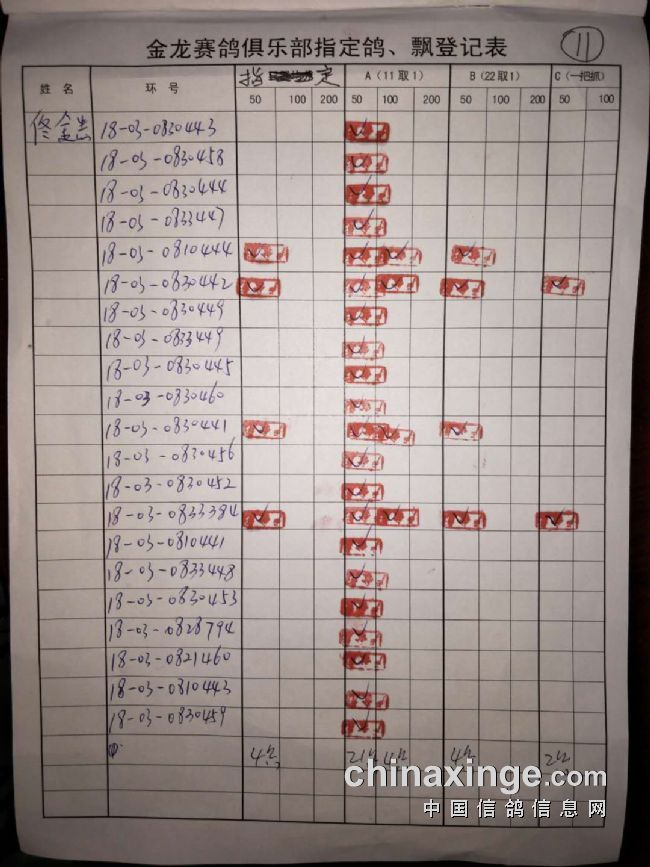 11
金龙赛鸽俱乐部指定鸽、飘登记表
姓 名 环 号 指 定 A（11取1） B（22取1） C（一把抓）
50 100 200 50 100 200 50 100 200 50 100
18-03-0830443
18-03-0830458
18-03-0830444
18-03-0833447
18-03-0810444
18-03-0830442
18-03-0830449
18-03-0833449
18-03-0830445
18-03-0830460
18-03-0830441
18-03-0830456
18-03-0830452
18-03-0833384
18-03-0810441
18-03-0833448
18-03-0830453
18-03-0828794
18-03-0821460
18-03-0810443
18-03-0830459
chinaxinge.com
中国信鸽信息网